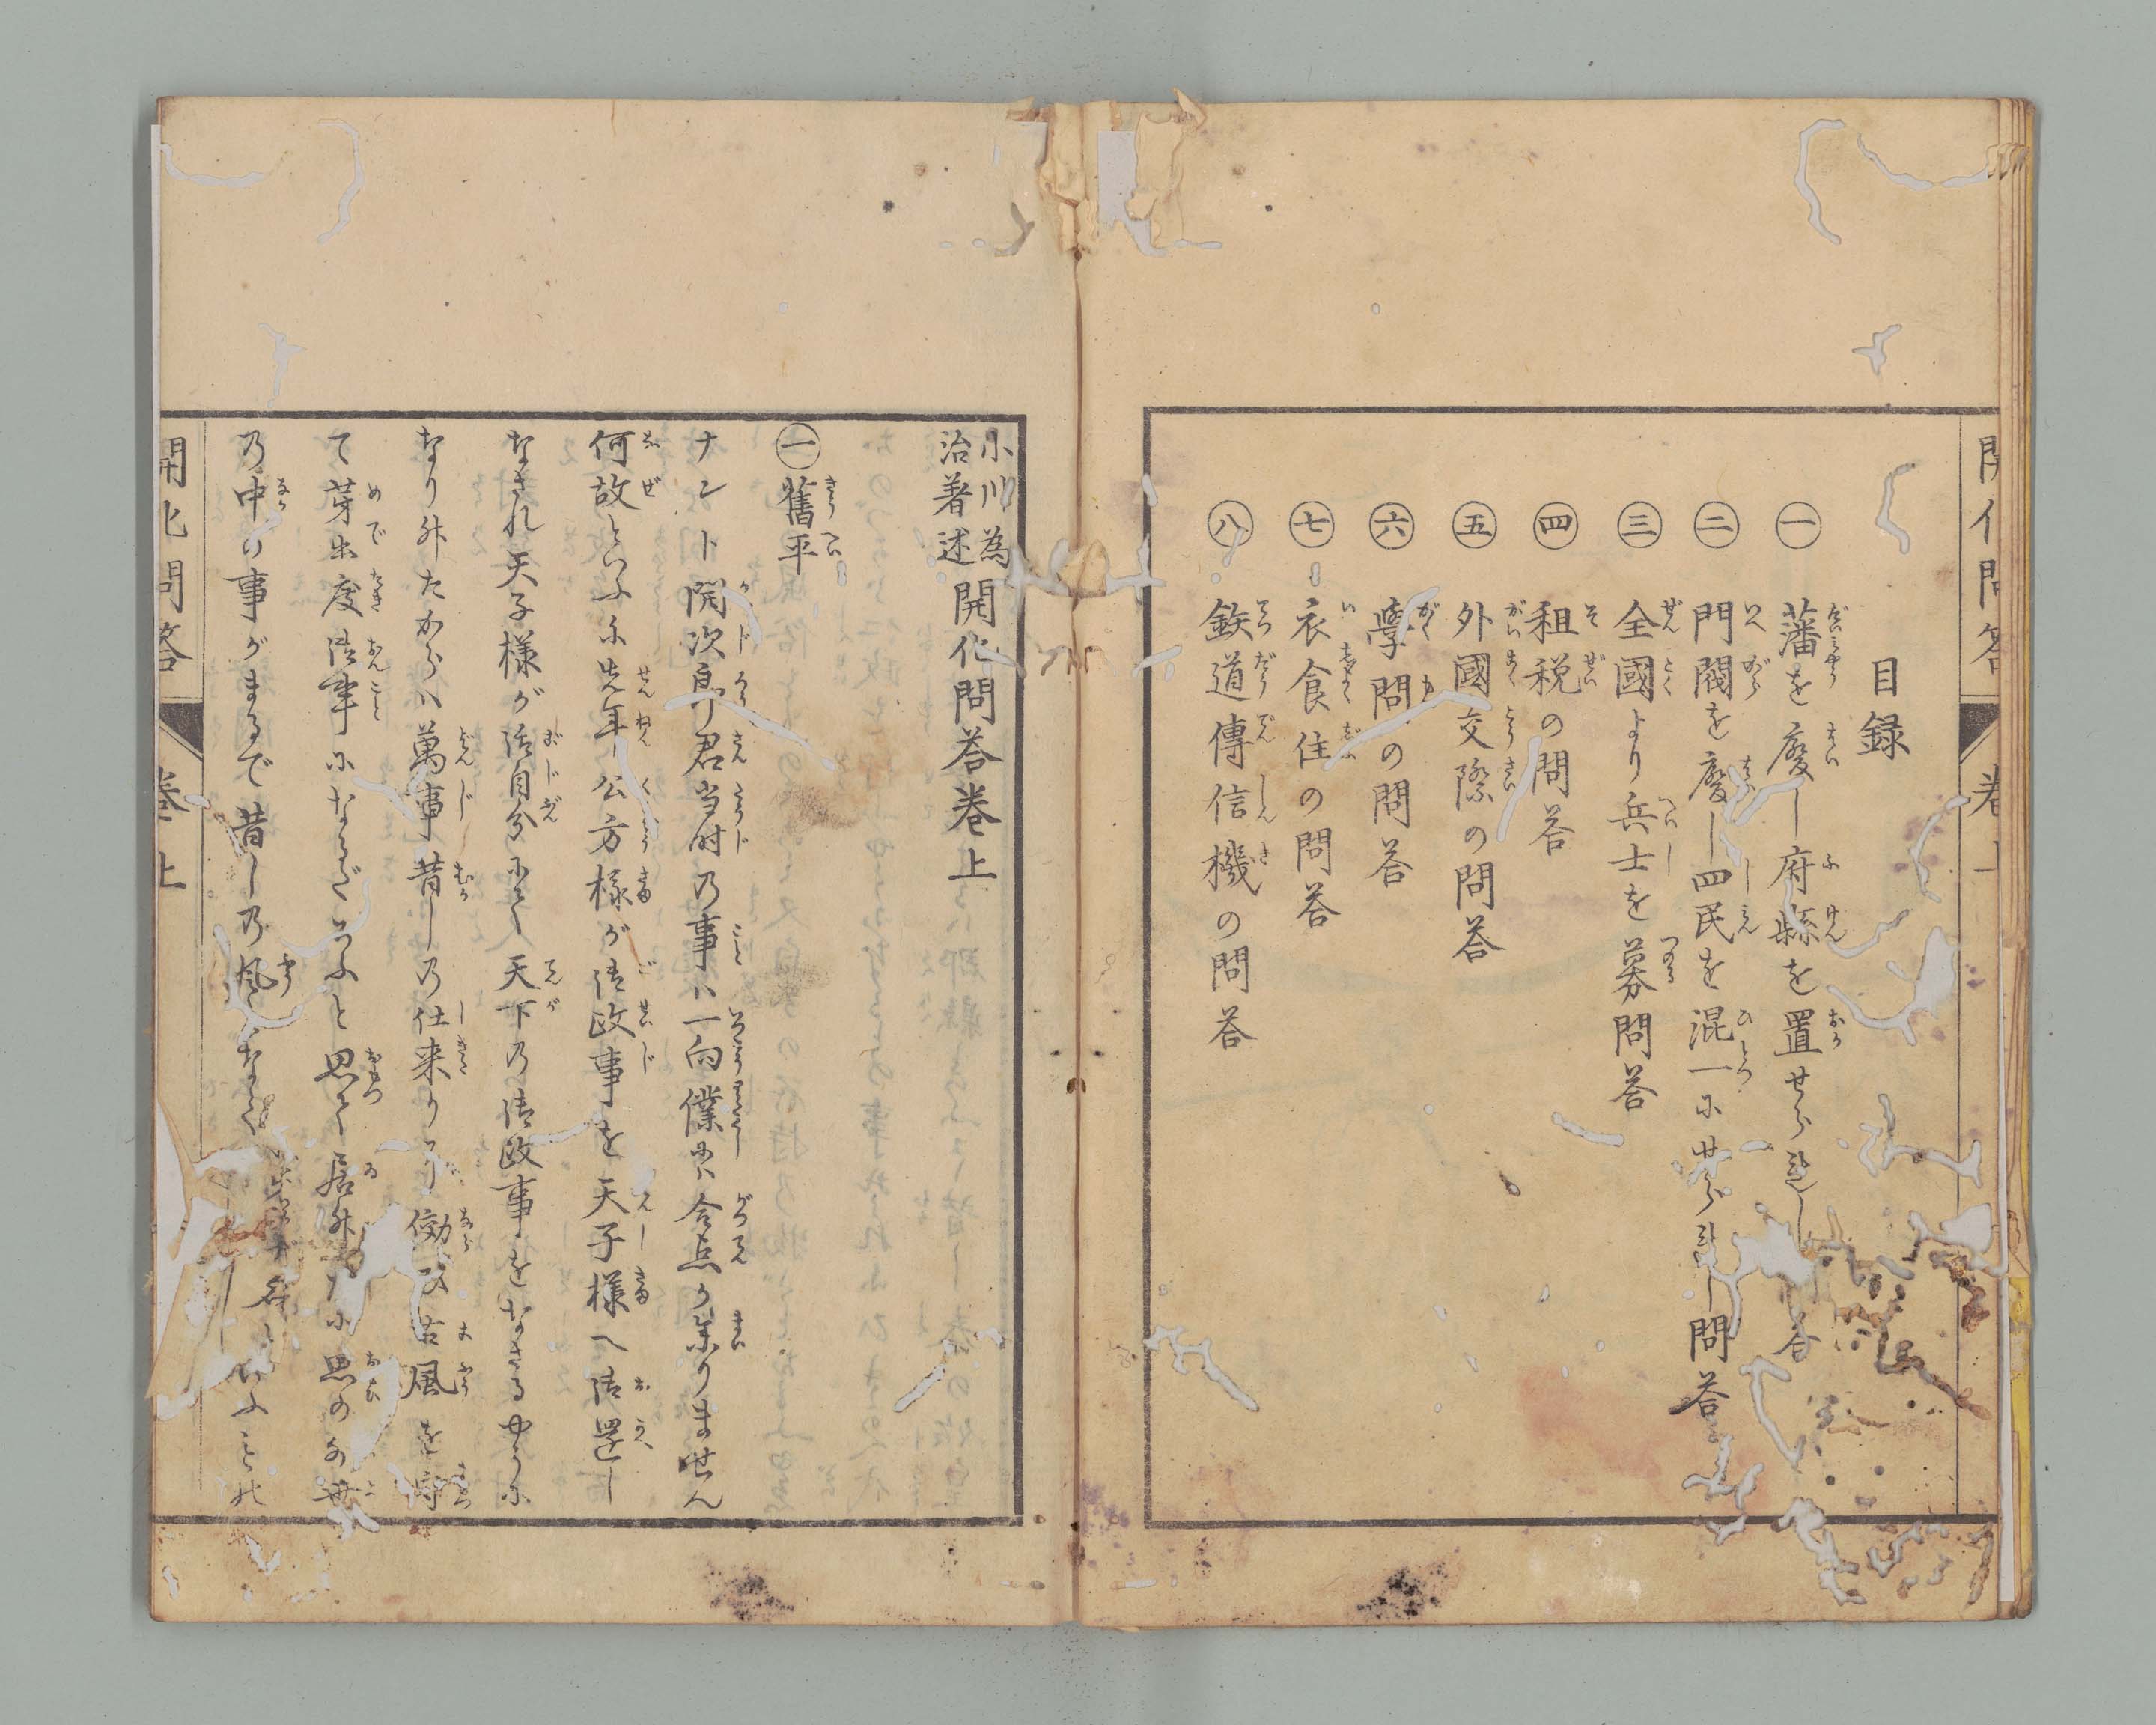 開化問答 巻上
目録
㊀ 藩を廃し府縣を置せられし
㊁ 門閥を廃し四民を混一にせられし問答
㊂ 全國より兵士を募問答
㊃ 租税の問答
㊄ 外國交際の問答
㊅ 學問の問答
㊆ 衣食住の問答
㊇ 鉄道傳信機の問答
小川為治著述 開化問答巻上
㊀舊平
ナント開次郎君当時乃事ハ一向僕にハ合点が参りません
何故といふに先年公方様が御政事を天子様へ御還し
なされ天子様が御自分にて天下乃御政事をなさるやうに
なり升たからハ萬事昔し乃仕来りに倣ひ古風を守
て芽出度御事にならだろふと思て居升たに思の外世
乃中の事がまるで昔し乃風なく
開化問答 巻上